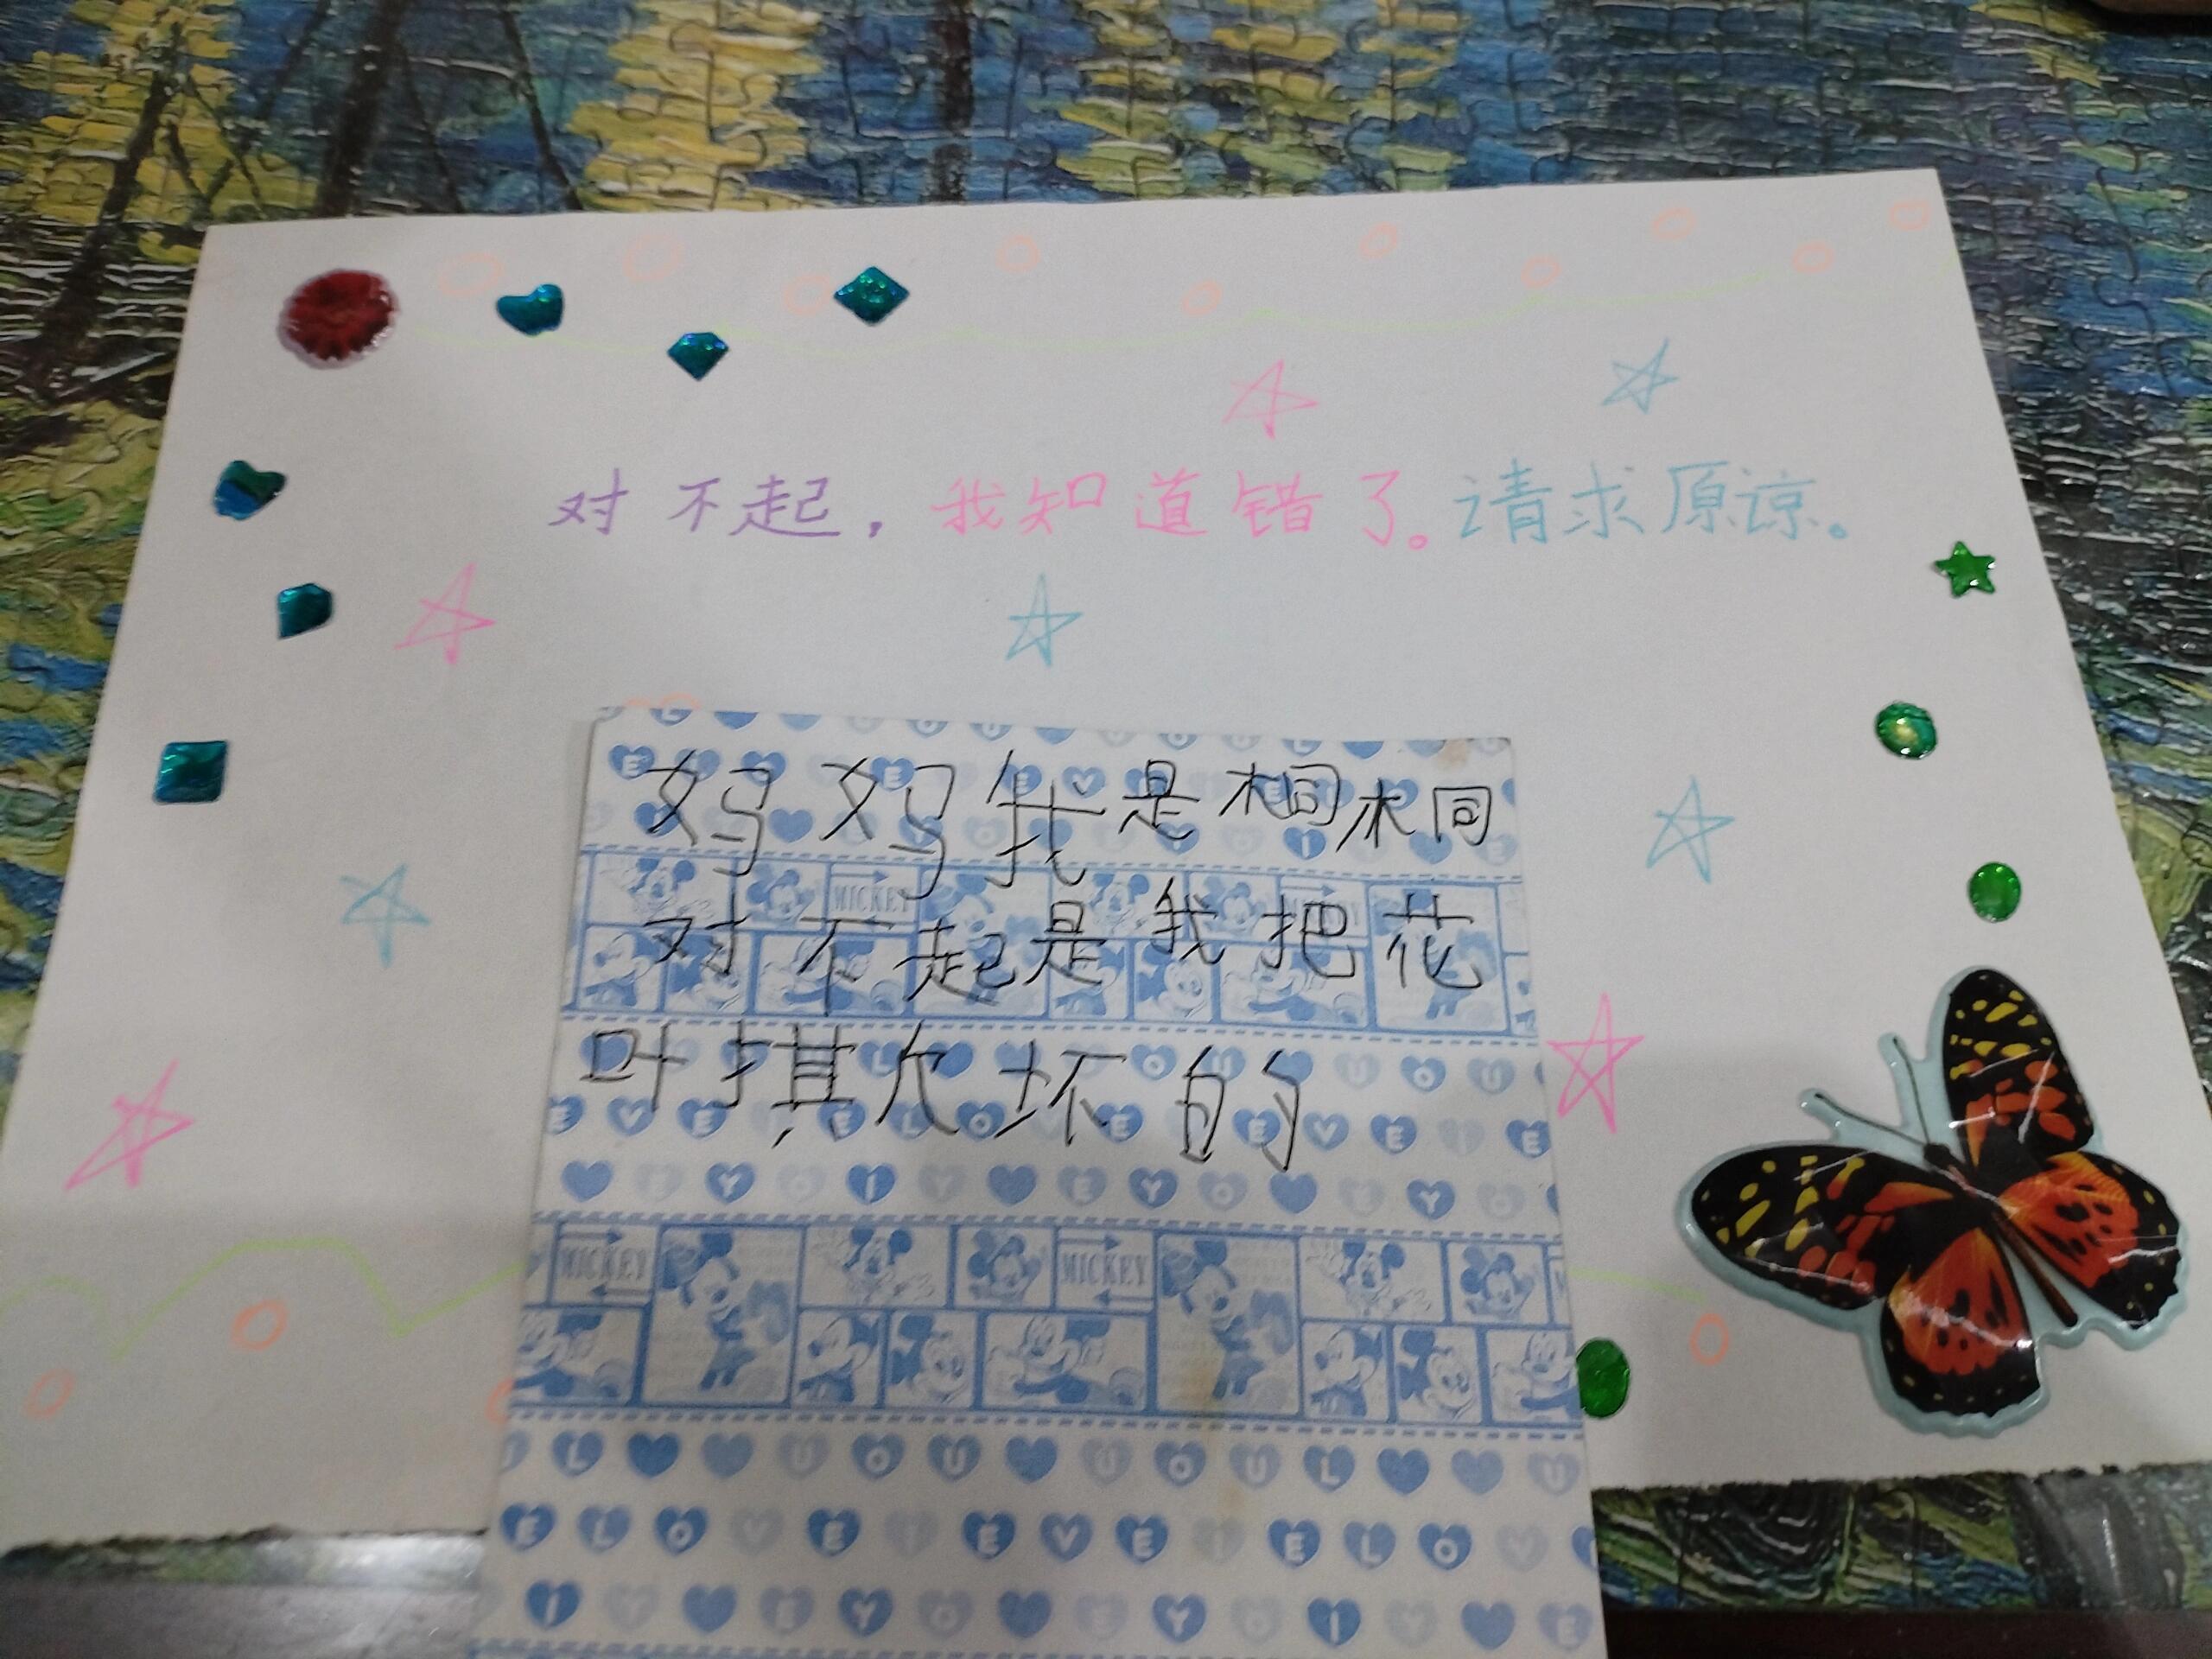 对不起，我知道错了。请求原谅。
妈妈我是桐桐
对不起是我把花
叶掑欠坏的
MICKEY
MICKEY MICKEY